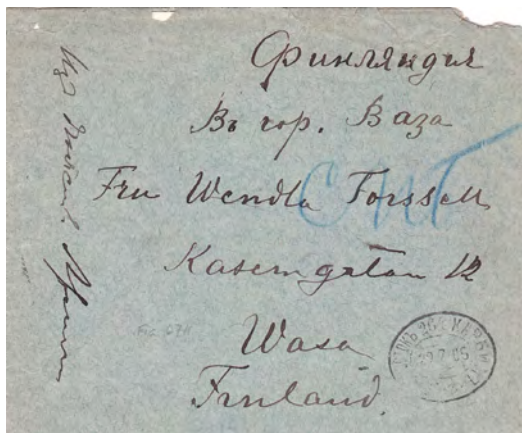 Финляндия
Въ гор. Ваза
Fru Wendla Forssell
Kaserngatan 12
Wasa
Finland.
Изъ